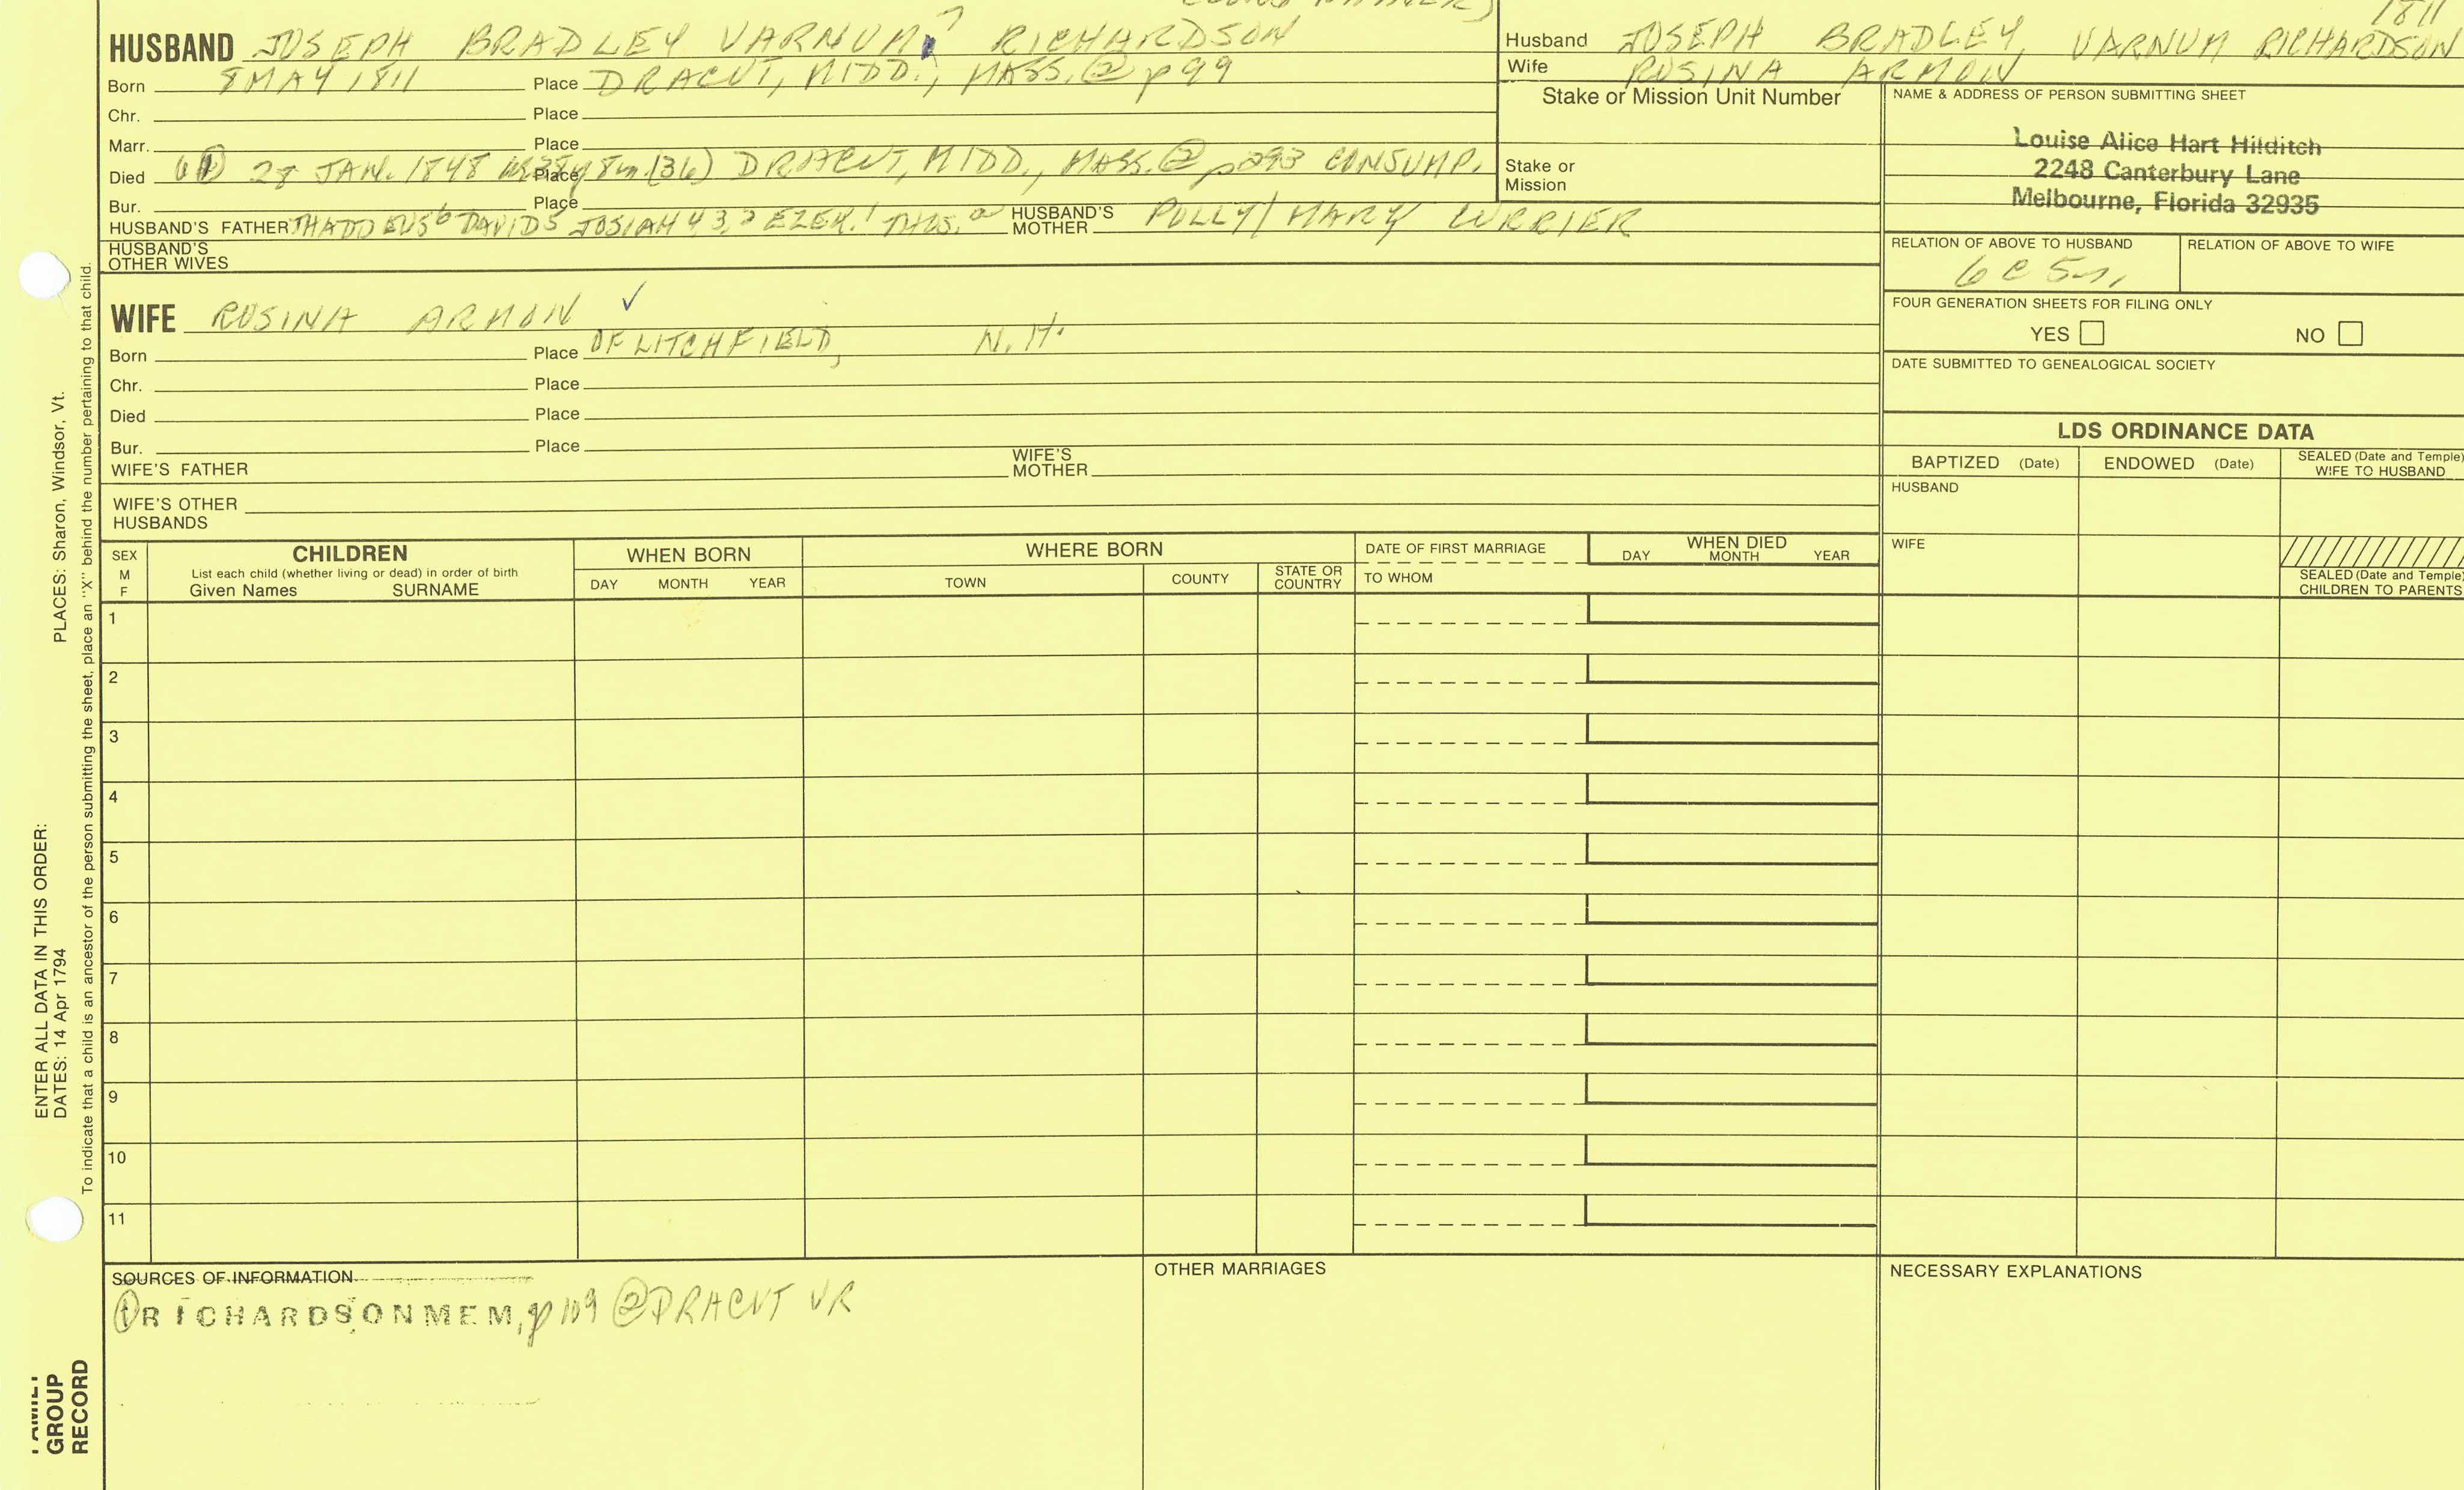 1811
HUSBAND JOSEPH BRADLEY VARNUM 7 RICHARDSON
Born 8 MAY 1811 Place DRACUT, MIDD., MASS. ② p 99
Chr. Place
Marr. Place
Died ① 28 JAN. 1848 Place (36) DRACUT, MIDD., MASS. ② p293 CONSUMP.
Bur. Place
HUSBAND'S FATHER THADDEUS 6 DAVID 5 JOSIAH 4 3, 2 EZEK. 1 THOS. HUSBAND'S MOTHER POLLY/MARY CURRIER
HUSBAND'S OTHER WIVES
Husband JOSEPH BRADLEY VARNUM RICHARDSON
Wife ROSINA ARMON
Stake or Mission Unit Number
Stake or Mission
NAME & ADDRESS OF PERSON SUBMITTING SHEET
Louise Alice Hart Hilditch
2248 Canterbury Lane
Melbourne, Florida 32935
RELATION OF ABOVE TO HUSBAND RELATION OF ABOVE TO WIFE
6 C 5
FOUR GENERATION SHEETS FOR FILING ONLY
YES NO
DATE SUBMITTED TO GENEALOGICAL SOCIETY
WIFE ROSINA ARMON ✓
Born Place OF LITCHFIELD, N.H.
Chr. Place
Died Place
Bur. Place
WIFE'S FATHER WIFE'S MOTHER
WIFE'S OTHER HUSBANDS
LDS ORDINANCE DATA
BAPTIZED (Date) ENDOWED (Date) SEALED (Date and Temple) WIFE TO HUSBAND
HUSBAND
WIFE
SEALED (Date and Temple) CHILDREN TO PARENTS
SEX M F
CHILDREN
List each child (whether living or dead) in order of birth
Given Names SURNAME
WHEN BORN
DAY MONTH YEAR
WHERE BORN
TOWN COUNTY STATE OR COUNTRY
DATE OF FIRST MARRIAGE
TO WHOM
WHEN DIED
DAY MONTH YEAR
1
2
3
4
5
6
7
8
9
10
11
SOURCES OF INFORMATION
① RICHARDSON MEM, p 109 ② DRACUT VR
OTHER MARRIAGES
NECESSARY EXPLANATIONS
ENTER ALL DATA IN THIS ORDER:
DATES: 14 Apr 1794 PLACES: Sharon, Windsor, Vt.
To indicate that a child is an ancestor of the person submitting the sheet, place an "X" behind the number pertaining to that child.
FAMILY
GROUP
RECORD